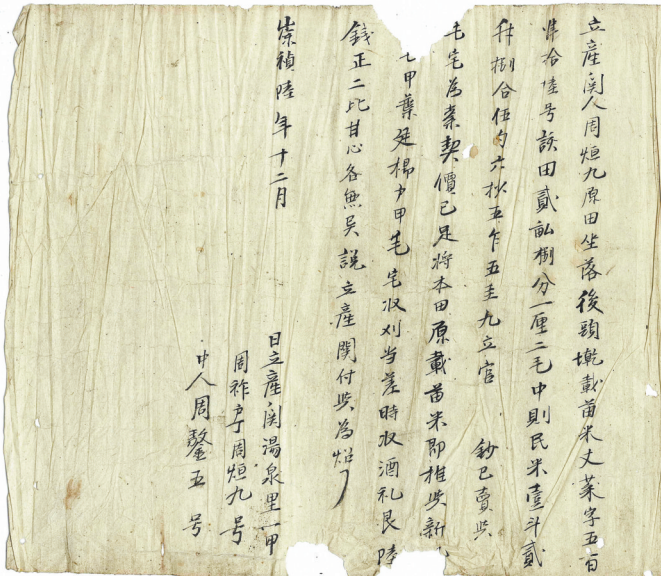 立產関人周烜九原田坐落後頭墘載苗米丈菜字五百
拾陸号該田貳畝捌分一厘二毛中則民米壹斗貳
升捌合伍勺六抄五乍五圭九立官 鈔已賣与
毛宅為業契價已足將本田原載苗米即推与新
七甲葉廷楊户甲毛宅収刈当差時収酒礼艮陸
錢正二比甘心各無吳說立產関付与為炤
崇禎陸年十二月
日立產関湯泉里一甲
周祚户丁周烜九号
中人周鏊五号